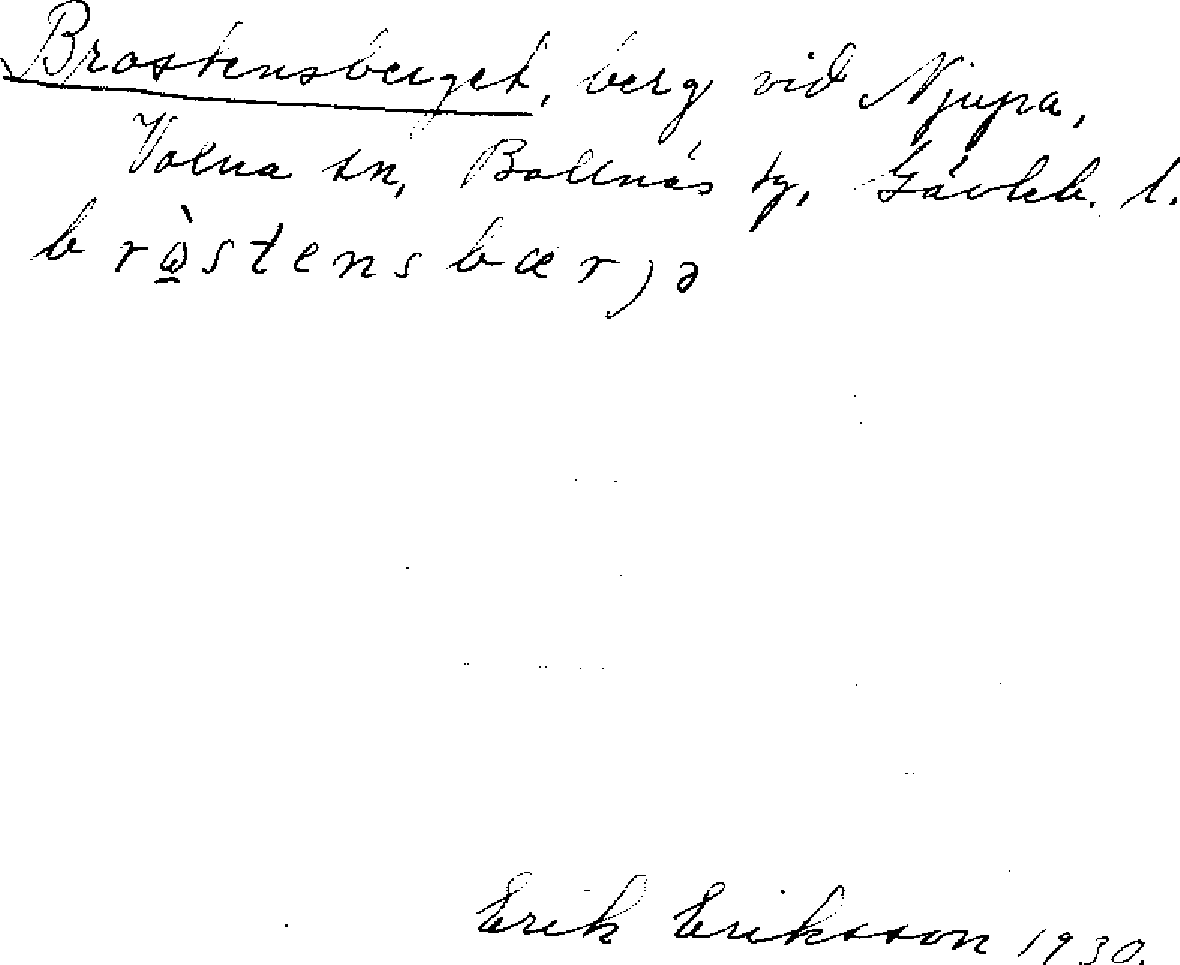 Brostensberget, berg vid Njupa,
Voxna sn, Bollnäs tg, Gävleb. l.
bròstensbærjə
Erik Eriksson 1930.